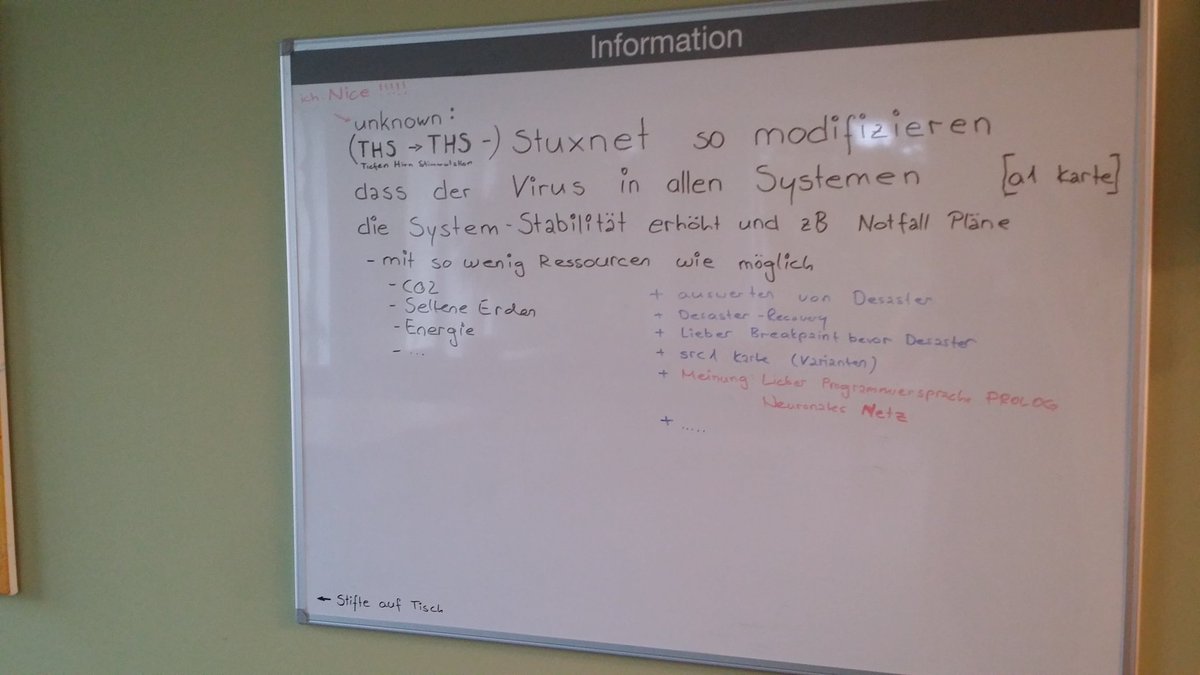 Information
ich: Nice !!!!!
unknown:
(THS → THS -) Stuxnet so modifizieren
Tiefen Hirn Stimulation
dass der Virus in allen Systemen [a1 Karte]
die System-Stabilität erhöht und zB Notfall Pläne
- mit so wenig Ressourcen wie möglich
- CO2
- Seltene Erden
- Energie
- ...
+ auswerten von Desaster
+ Desaster-Recovery
+ Lieber Breakpoint bevor Desaster
+ src1 Karte (Varianten)
+ Meinung: Lieber Programmiersprache PROLOG
Neuronales Netz
+ .....
← Stifte auf Tisch